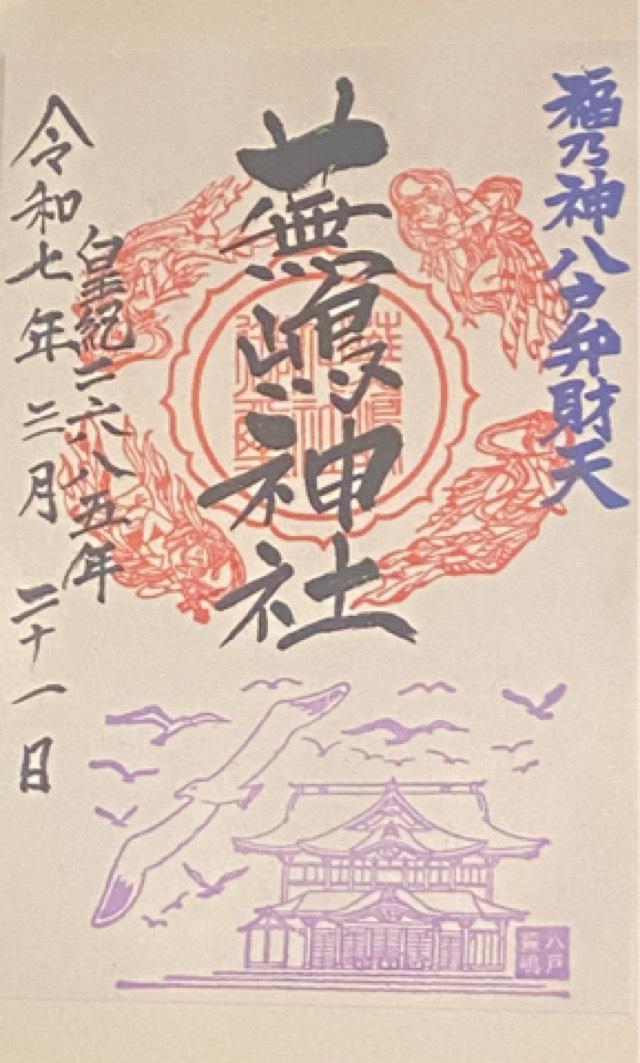 福乃神八戸弁財天
蕪嶋神社
皇紀二六八五年
令和七年二月二十一日
八戸
蕪嶋